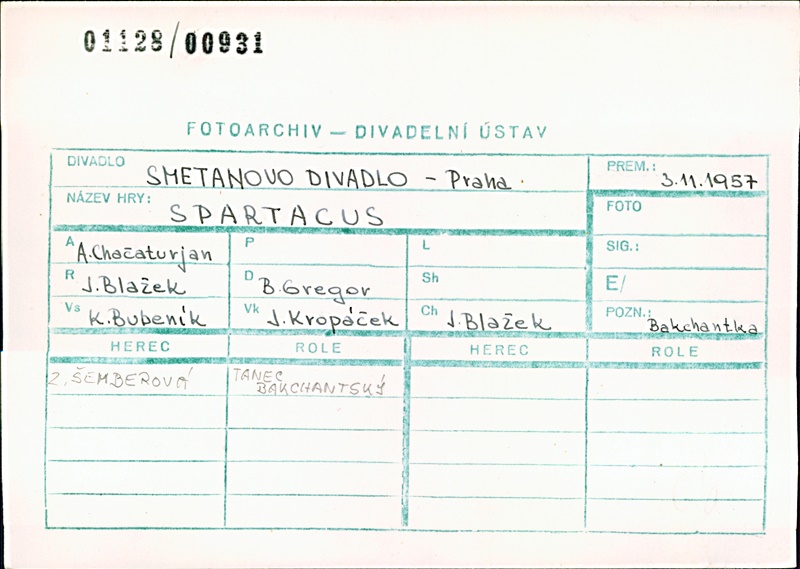 01128/00931
FOTOARCHIV — DIVADELNÍ ÚSTAV
DIVADLO SMETANOVO DIVADLO - Praha
PREM.: 3.11.1957
NÁZEV HRY: SPARTACUS
FOTO
A A.Chačaturjan P L SIG.:
R J.Blažek D B.Gregor Sh E/
Vs K.Bubeník Vk J.Kropáček Ch J.Blažek POZN.: Bakchantka
HEREC ROLE HEREC ROLE
Z. ŠEMBEROVÁ TANEC
BAKCHANTSKÝ